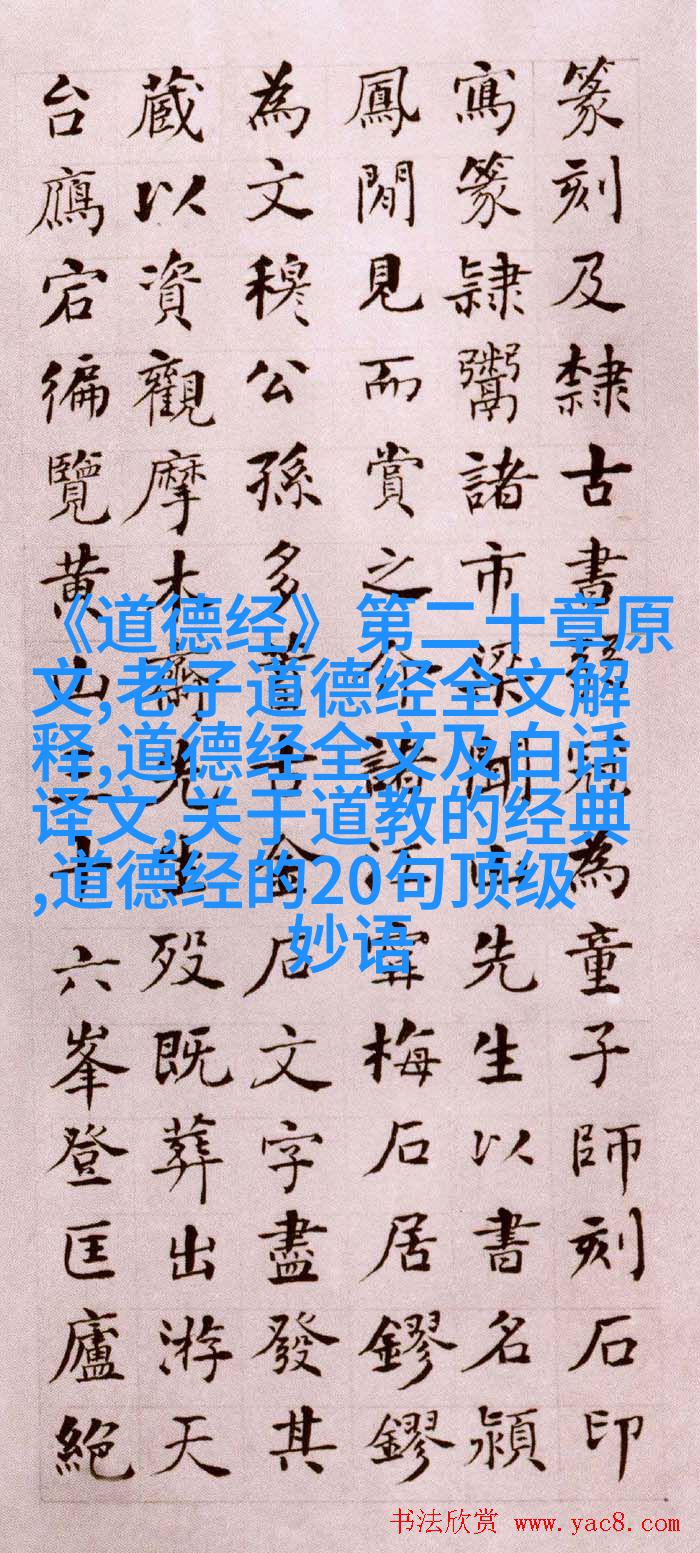 篆刻及隸古書為童子師刻石印
寫篆隸鬻諸市梁聞山先生以書名潁
鳳閒見而賞之介諸江寧梅石居鏐鏐
為文穆公孫多蓄古金石文字盡發其
蔵以資觀摩木齋先生殁既葬出游天
台鴈宕徧覽黄山三十六峯登匡廬絕
《道德经》第二十章原
文,老子道德经全文解
释,道德经全文及白话
译文,关于道教的经典
,道德经的20句顶级
妙语
书法欣赏 www.yac8.com